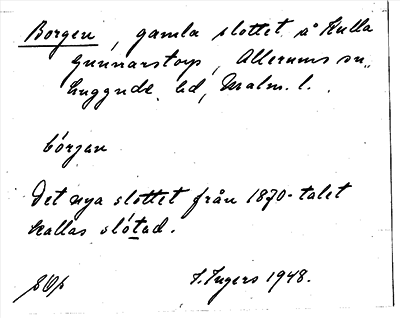 Borgen, gamla slottet å Kulla
Gunnarstorp, Allerums sn.,
Luggude hd, Malm. l.
bórjan
Det nya slottet från 1870-talet
kallas slótad.
I. Ingers 1948.